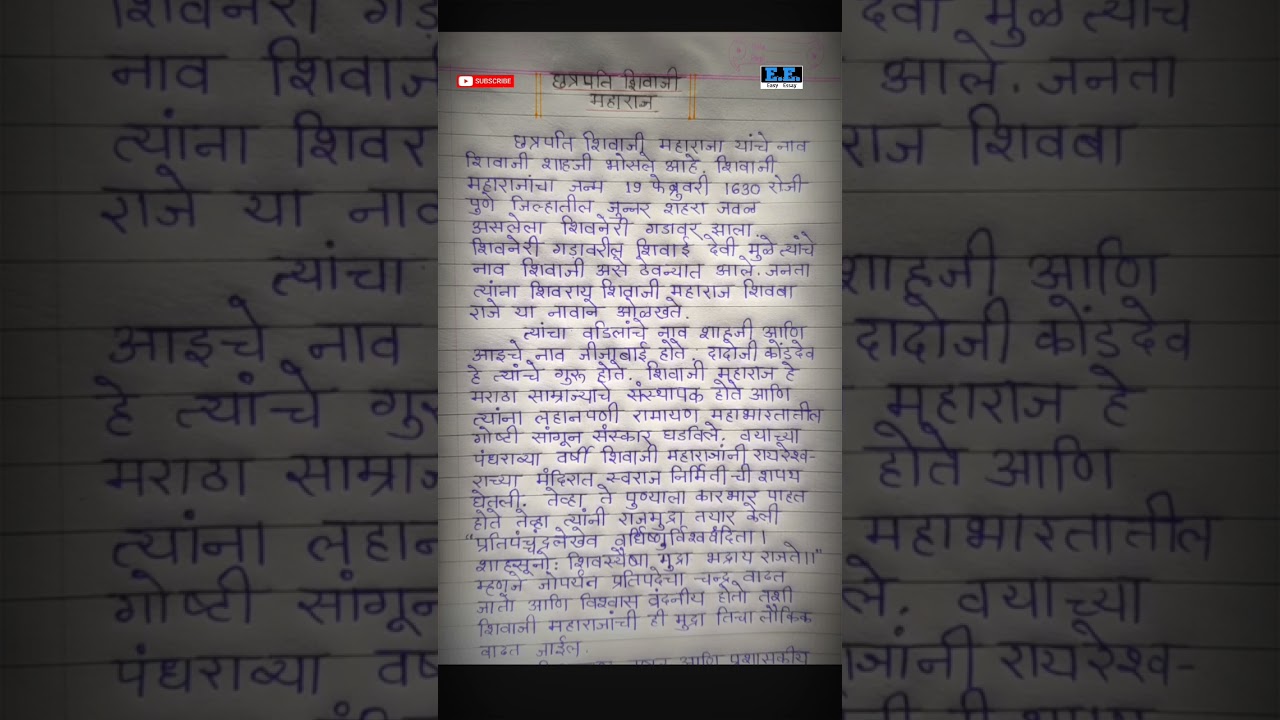 SUBSCRIBE
E.E.
Easy Essay
छत्रपति शिवाजी
महाराज
छत्रपति शिवाजी महाराजा यांचे नाव
शिवाजी शाहजी भोसले आहे. शिवाजी
महाराजांचा जन्म 19 फेब्रुवरी 1630 रोजी
पुणे जिल्हातील जुन्नर शहरा जवळ
असलेला शिवनेरी गडावर झाला.
शिवनेरी गडावरील शिवाई देवी मुळे त्यांचे
नाव शिवाजी असे ठेवन्यात आले. जनता
त्यांना शिवराय शिवाजी महाराज शिवबा
राजे या नावाने ओळखते.
त्यांचा वडिलांचे नाव शाहूजी आणि
आइचे नाव जीजाबाई होते. दादोजी कोंडदेव
हे त्यांचे गुरू होते. शिवाजी महाराज हे
मराठा साम्राज्याचे संस्थापक होते आणि
त्यांना लहानपणी रामायण महाभारतातील
गोष्टी सांगून संस्कार घडविले. वयाच्या
पंधराव्या वर्षी शिवाजी महाराजांनी रायरेश्व-
राच्या मंदिरात स्वराज निर्मितीची शपथ
घेतली. तेव्हा ते पुण्याला कारभार पाहत
होते तेव्हा त्यांनी राजमुद्रा तयार केली
"प्रतिपच्चंद्रलेखेव वर्धिष्णुविश्ववंदिता।
शाहसूनोः शिवस्यैषा मुद्रा भद्राय राजते॥"
म्हणूने जोपर्यंत प्रतिपदेचा चन्द्र वाढत
जातो आणि विश्वास वंदनीय होतो तशी
शिवाजी महाराजांची ही मुद्रा तिचा लौकिक
वाढत जाईल.
आणि प्रशासकीय